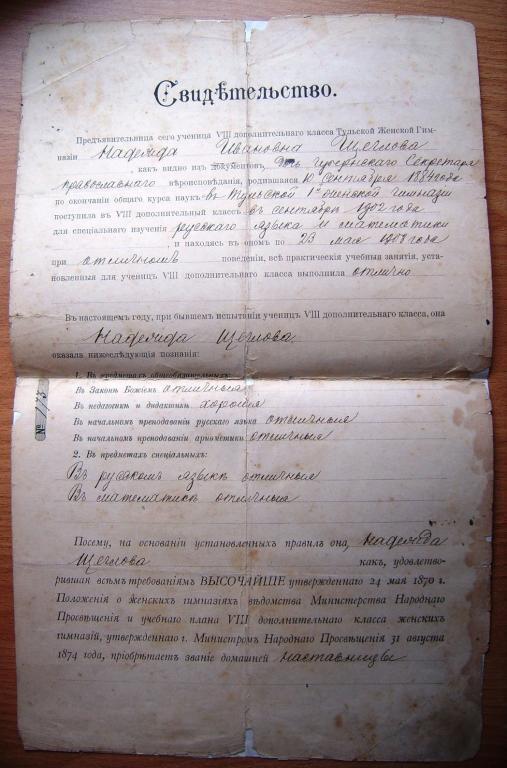 Свидѣтельство.
Предъявительница сего ученица VIII дополнительнаго класса Тульской Женской Гим-
назіи Надежда Ивановна Щеглова
, какъ видно изъ документовъ, дочь Губернскаго Секретаря
православнаго вѣроисповѣданія, родившаяся 10 Сентября 1884 года
по окончаніи общаго курса наукъ въ Тульской 1й женской гимназіи
поступила въ VIII дополнительный классъ въ сентябрѣ 1902 года
для спеціальнаго изученія русскаго языка и математики
, и находясь въ ономъ по 23 мая года
при отличномъ поведеніи, всѣ практическія учебныя занятія, уста-
новленныя для ученицъ VIII дополнительнаго класса выполнила отлично
Въ настоящемъ году, при бывшемъ испытаніи ученицъ VIII дополнительнаго класса, она
Надежда Щеглова
оказала нижеслѣдующія познанія:
1. Въ предметахъ общеобязательныхъ:
Въ Законѣ Божіемъ отличныя
Въ педагогикѣ и дидактикѣ хорошія
Въ начальномъ преподаваніи русскаго языка отличныя
Въ начальномъ преподаваніи ариѳметики отличныя
2. Въ предметахъ спеціальныхъ:
Въ русскомъ языкѣ отличныя
Въ математикѣ отличныя
№ 113
Посему, на основаніи установленныхъ правилъ она, Надежда
Щеглова какъ, удовлетво-
рившая всѣмъ требованіямъ ВЫСОЧАЙШЕ утвержденнаго 24 мая 1870 г.
Положенія о женскихъ гимназіяхъ вѣдомства Министерства Народнаго
Просвѣщенія и учебнаго плана VIII дополнительнаго класса женскихъ
гимназій, утвержденнаго г. Министромъ Народнаго Просвѣщенія 31 августа
1874 года, пріобрѣтаетъ званіе домашней наставницы